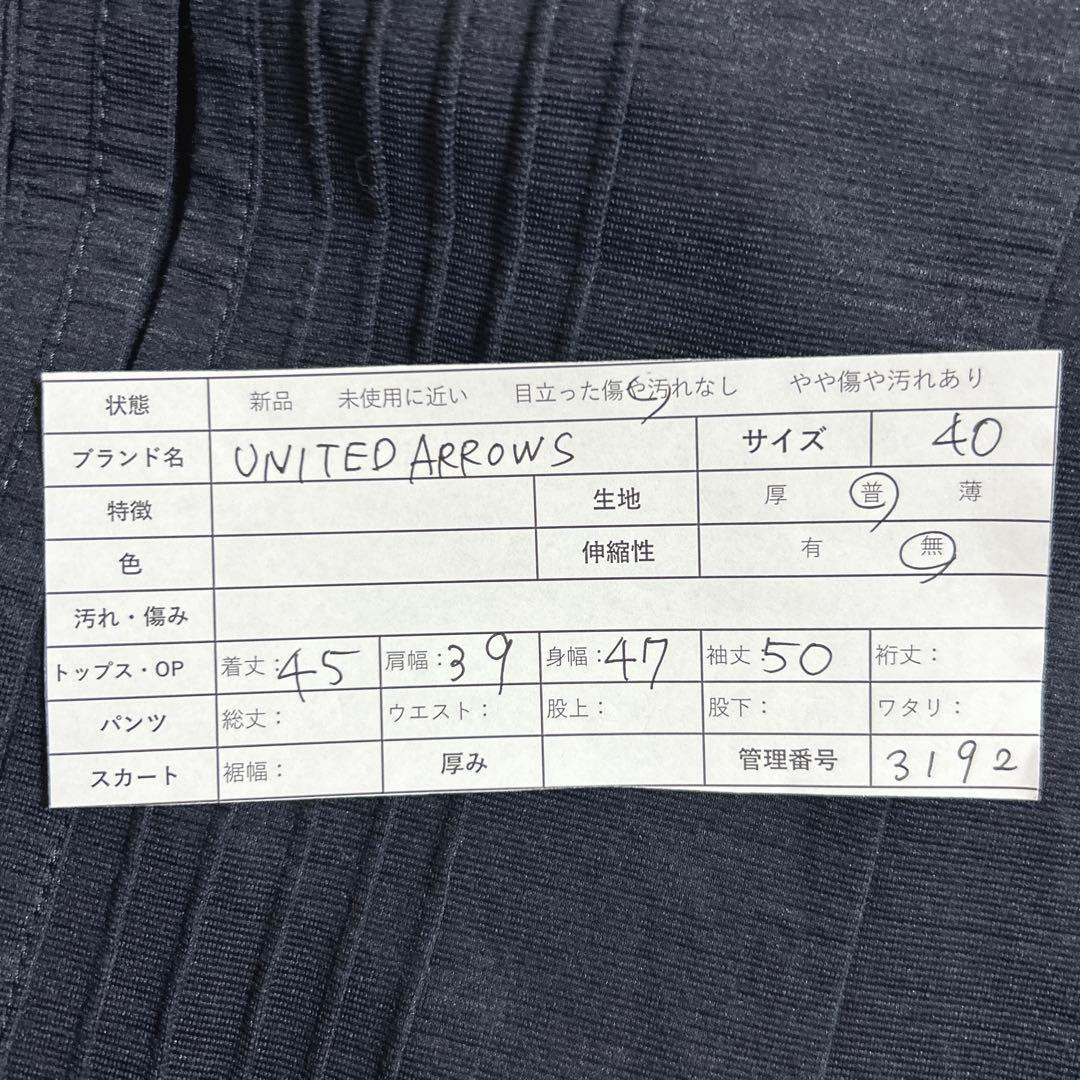 状態 新品 未使用に近い 目立った傷や汚れなし やや傷や汚れあり
ブランド名 UNITED ARROWS サイズ 40
特徴 生地 厚 普 薄
色 伸縮性 有 無
汚れ・傷み
トップス・OP 着丈:45 肩幅:39 身幅:47 袖丈:50 裄丈:
パンツ 総丈: ウエスト: 股上: 股下: ワタリ:
スカート 裾幅: 厚み 管理番号 3192